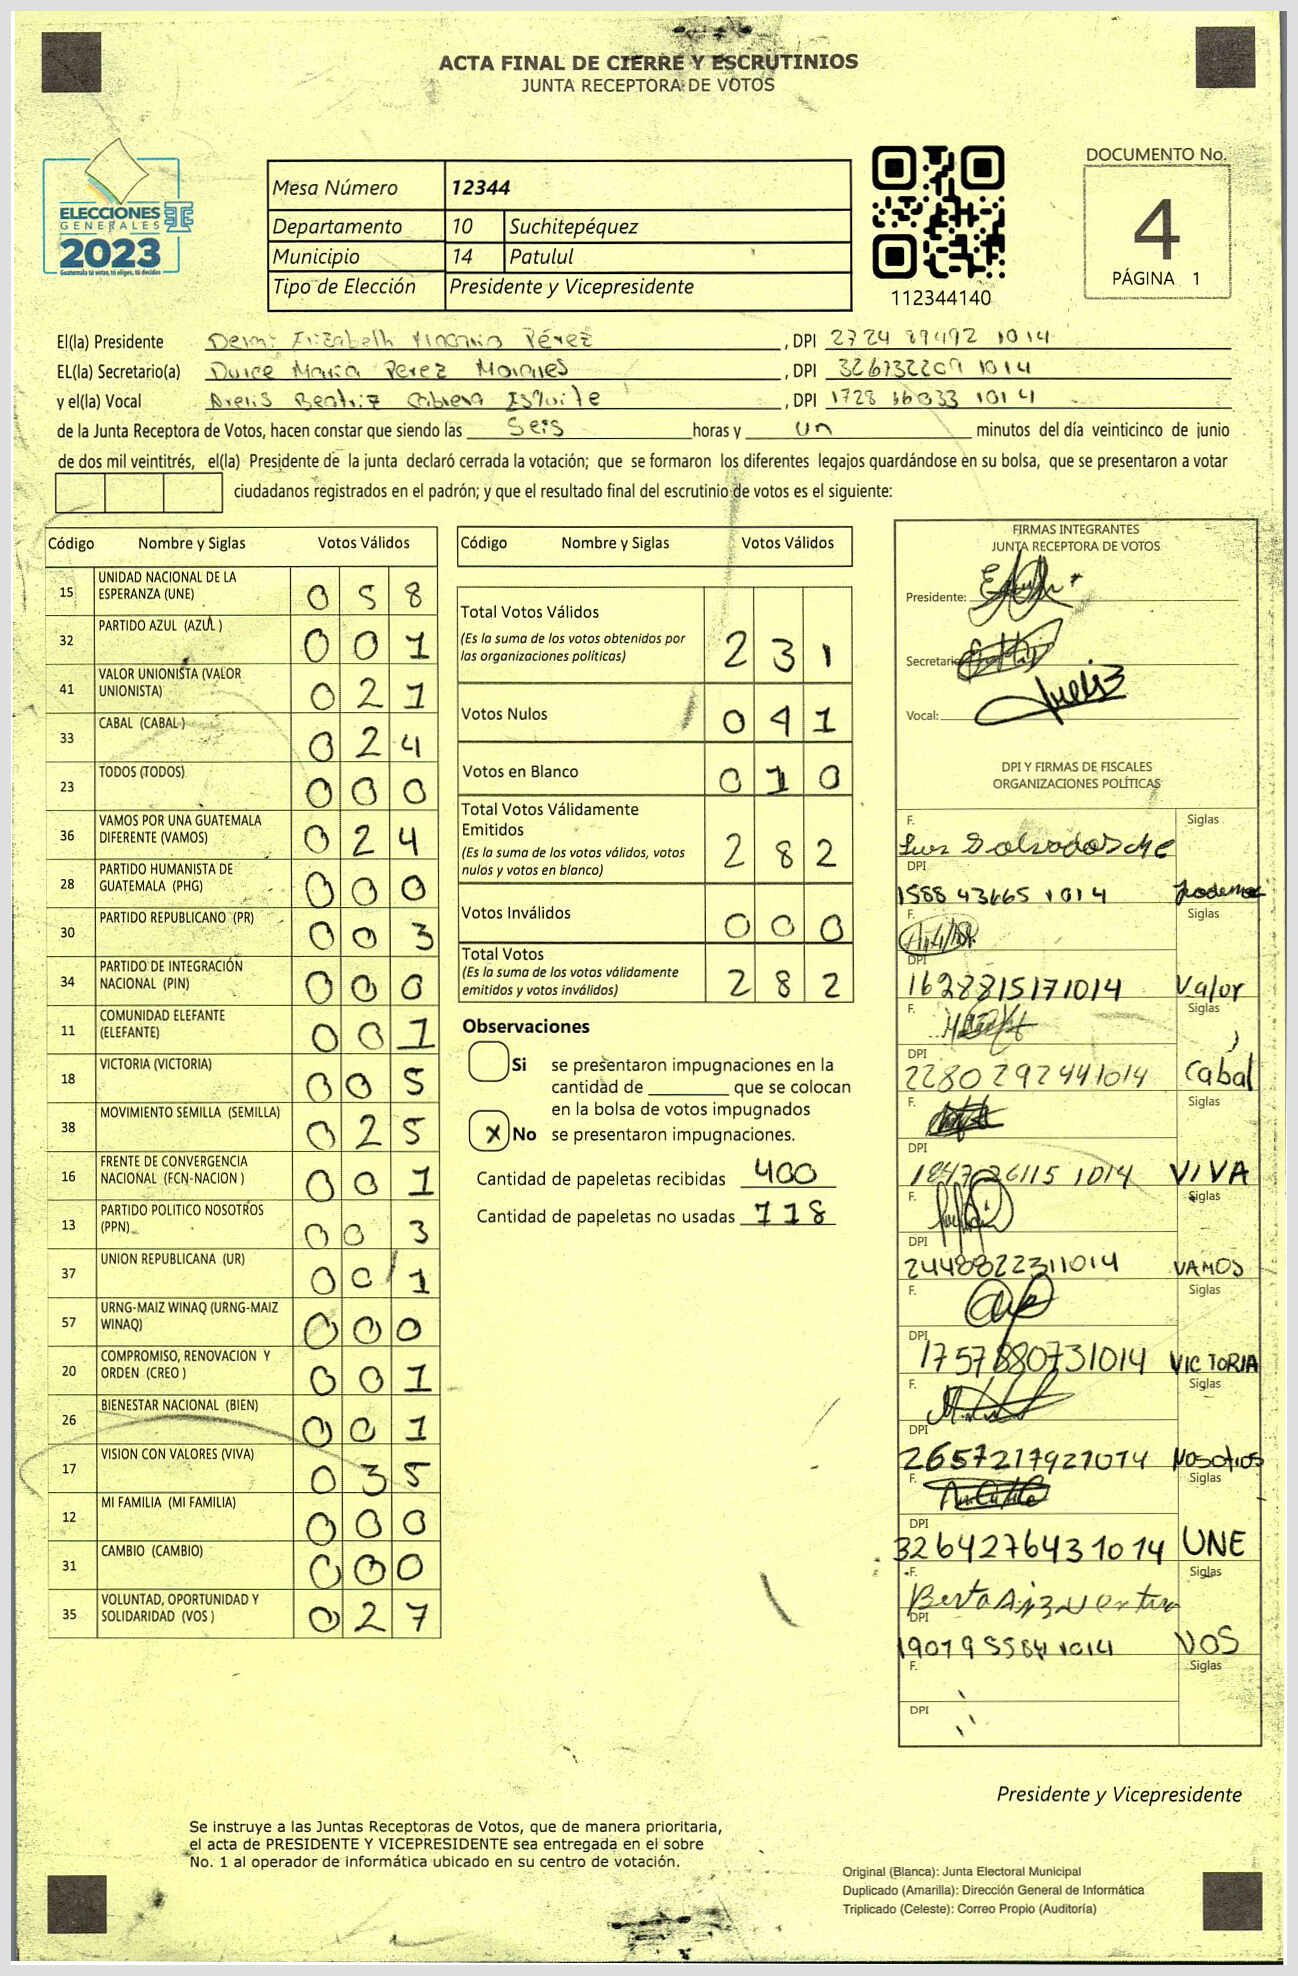 ACTA FINAL DE CIERRE Y ESCRUTINIOS
JUNTA RECEPTORA DE VOTOS
ELECCIONES
GENERALES
2023
Guatemala tú votas, tú eliges, tú decides
Mesa Número 12344
Departamento 10 Suchitepéquez
Municipio 14 Patulul
Tipo de Elección Presidente y Vicepresidente
112344140
DOCUMENTO No.
4
PÁGINA 1
El(la) Presidente Elizabeth Pérez , DPI 2724 89492 1014
EL(la) Secretario(a) Dulce Maria Perez Morales , DPI 326732209 1014
y el(la) Vocal Arelis Beatriz Cabrera , DPI 1728 16033 1014
de la Junta Receptora de Votos, hacen constar que siendo las Seis horas y un minutos del día veinticinco de junio
de dos mil veintitrés, el(la) Presidente de la junta declaró cerrada la votación; que se formaron los diferentes legajos guardándose en su bolsa, que se presentaron a votar
ciudadanos registrados en el padrón; y que el resultado final del escrutinio de votos es el siguiente:
Código Nombre y Siglas Votos Válidos
15 UNIDAD NACIONAL DE LA ESPERANZA (UNE) 0 5 8
32 PARTIDO AZUL (AZUL ) 0 0 1
41 VALOR UNIONISTA (VALOR UNIONISTA) 0 2 1
33 CABAL (CABAL ) 0 2 4
23 TODOS (TODOS) 0 0 0
36 VAMOS POR UNA GUATEMALA DIFERENTE (VAMOS) 0 2 4
28 PARTIDO HUMANISTA DE GUATEMALA (PHG) 0 0 0
30 PARTIDO REPUBLICANO (PR) 0 0 3
34 PARTIDO DE INTEGRACIÓN NACIONAL (PIN) 0 0 0
11 COMUNIDAD ELEFANTE (ELEFANTE) 0 0 1
18 VICTORIA (VICTORIA) 0 0 5
38 MOVIMIENTO SEMILLA (SEMILLA) 0 2 5
16 FRENTE DE CONVERGENCIA NACIONAL (FCN-NACION ) 0 0 1
13 PARTIDO POLITICO NOSOTROS (PPN) 0 0 3
37 UNION REPUBLICANA (UR) 0 0 1
57 URNG-MAIZ WINAQ (URNG-MAIZ WINAQ) 0 0 0
20 COMPROMISO, RENOVACION Y ORDEN (CREO ) 0 0 1
26 BIENESTAR NACIONAL (BIEN) 0 0 1
17 VISION CON VALORES (VIVA) 0 3 5
12 MI FAMILIA (MI FAMILIA) 0 0 0
31 CAMBIO (CAMBIO) 0 0 0
35 VOLUNTAD, OPORTUNIDAD Y SOLIDARIDAD (VOS ) 0 2 7
Código Nombre y Siglas Votos Válidos
Total Votos Válidos 2 3 1
(Es la suma de los votos obtenidos por
las organizaciones políticas)
Votos Nulos 0 4 1
Votos en Blanco 0 1 0
Total Votos Válidamente
Emitidos 2 8 2
(Es la suma de los votos válidos, votos
nulos y votos en blanco)
Votos Inválidos 0 0 0
Total Votos 2 8 2
(Es la suma de los votos válidamente
emitidos y votos inválidos)
Observaciones
Si se presentaron impugnaciones en la
cantidad de ________ que se colocan
en la bolsa de votos impugnados
X No se presentaron impugnaciones.
Cantidad de papeletas recibidas 400
Cantidad de papeletas no usadas 118
FIRMAS INTEGRANTES
JUNTA RECEPTORA DE VOTOS
Presidente:
Secretario
Vocal:
DPI Y FIRMAS DE FISCALES
ORGANIZACIONES POLÍTICAS
F. Siglas
Luis
DPI
1588 43665 1014 Podemos
F. Siglas
DPI
1628815171014 Valor
F. Siglas
DPI
2280292441014 Cabal
F. Siglas
DPI
1014 VIVA
F. Siglas
DPI
2448822311014 VAMOS
F. Siglas
DPI
1757880731014 VICTORIA
F. Siglas
DPI
2657217921014 Nosotros
F. Siglas
DPI
3264276431014 UNE
F. Siglas
Berta
DPI
1907955841014 VOS
F. Siglas
DPI
Presidente y Vicepresidente
Se instruye a las Juntas Receptoras de Votos, que de manera prioritaria,
el acta de PRESIDENTE Y VICEPRESIDENTE sea entregada en el sobre
No. 1 al operador de informática ubicado en su centro de votación.
Original (Blanca): Junta Electoral Municipal
Duplicado (Amarilla): Dirección General de Informática
Triplicado (Celeste): Correo Propio (Auditoría)